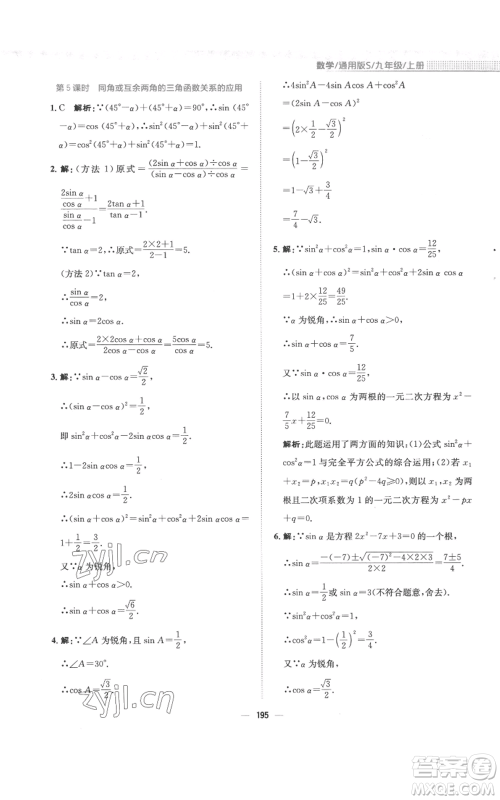 数学/通用版S/九年级/上册
第5课时 同角或互余两角的三角函数关系的应用
1. C 解析:∵(45°-α)+(45°+α)=90°,∴sin(45°
-α)=cos(45°+α).∴sin²(45°-α)+sin²(45°
+α)=1.
2. 解:(方法1)原式=(2sin α+cos α)÷cos α/(sin α-cos α)÷cos α=
(2sin α/cos α+1)/(sin α/cos α-1)=(2tan α+1)/(tan α-1).
∵tan α=2,∴原式=(2×2+1)/(2-1)=5.
(方法2)∵tan α=2,
∴sin α/cos α=2,
∴sin α=2cos α,
∴原式=(2×2cos α+cos α)/(2cos α-cos α)=5cos α/cos α=5.
3. 解:∵sin α-cos α=√2/2,
∴(sin α-cos α)²=1/2,
即 sin²α-2sin αcos α+cos²α=1/2,
∴1-2sin αcos α=1/2,
∴2sin αcos α=1/2,
∴(sin α+cos α)²=sin²α+cos²α+2sin αcos α=
1+1/2=3/2.
又∵α为锐角,
∴sin α+cos α>0.
∴sin α+cos α=√6/2.
4. 解:∵∠A为锐角,且 sin A=1/2,
∴∠A=30°.
∴cos A=√3/2.
∴sin²A+cos²A-√3 sin A cos A
=(1/2)²+(√3/2)²-√3×1/2×√3/2
=(1-√3/2)²
=1-√3+3/4
=7/4-√3.
5. 解:∵sin²α+cos²α=1,sin α·cos α=12/25,
∴(sin α+cos α)²=sin²α+cos²α+2sin αcos α
=1+2×12/25=49/25.
∵α为锐角,∴sin α+cos α>0,
∴sin α+cos α=7/5.
又∵sin α·cos α=12/25,
∴以 sin α,cos α为两根的一元二次方程为x²-
7/5x+12/25=0.
解析:此题运用了两方面的知识:(1)公式 sin²α+
cos²α=1与完全平方公式的综合运用;(2)若x₁
+x₂=p,x₁x₂=q(p²-4q≥0),则以x₁,x₂为两
根,且二次项系数为1的一元二次方程为x²-px
+q=0.
6. 解:∵sin α是方程2x²-7x+3=0的一个根,
∴sin α=(-(-7)±√((-7)²-4×2×3))/(2×2)=(7±5)/4.
∴sin α=1/2或 sin α=3(不符合题意,舍去).
∵sin²α+cos²α=1,
∴cos²α=1-(1/2)²=3/4.
又∵α为锐角,∴cos α=√3/2.
195
zyjl.cn
zyjl.cn